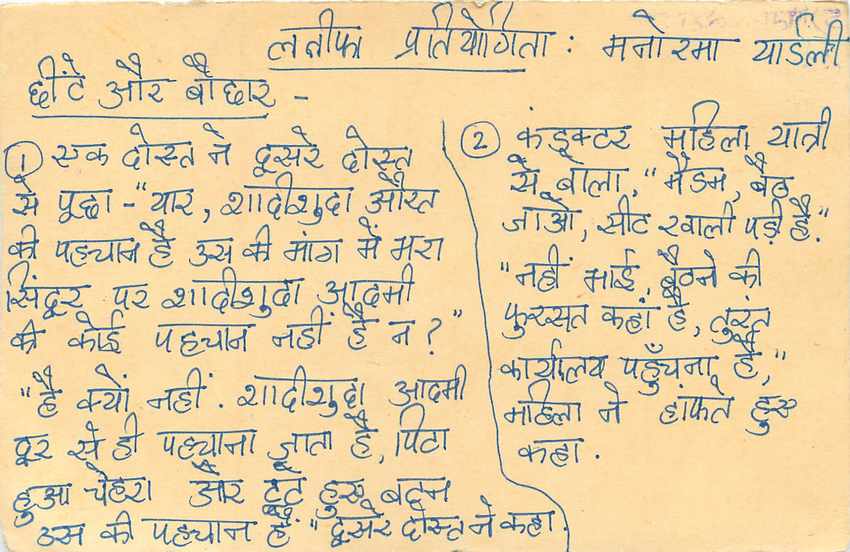 लतीफा प्रतियोगिता : मनोरमा यार्डली
छींटे और बौछार -
① एक दोस्त ने दूसरे दोस्त
से पूछा - "यार, शादीशुदा औरत
की पहचान है उस की मांग में भरा
सिंदूर पर शादीशुदा आदमी
की कोई पहचान नहीं है न ?"
"है क्यों नहीं. शादीशुदा आदमी
दूर से ही पहचाना जाता है, पिटा
हुआ चेहरा और टूटे हुए बटन
उस की पहचान हैं" दूसरे दोस्त ने कहा.
② कंडक्टर महिला यात्री
से बोला, "मैडम, बैठ
जाओ, सीट खाली पड़ी है."
"नहीं भाई, बैठने की
फुरसत कहां है, तुरंत
कार्यालय पहुँचना है,"
महिला ने हांफते हुए
कहा.